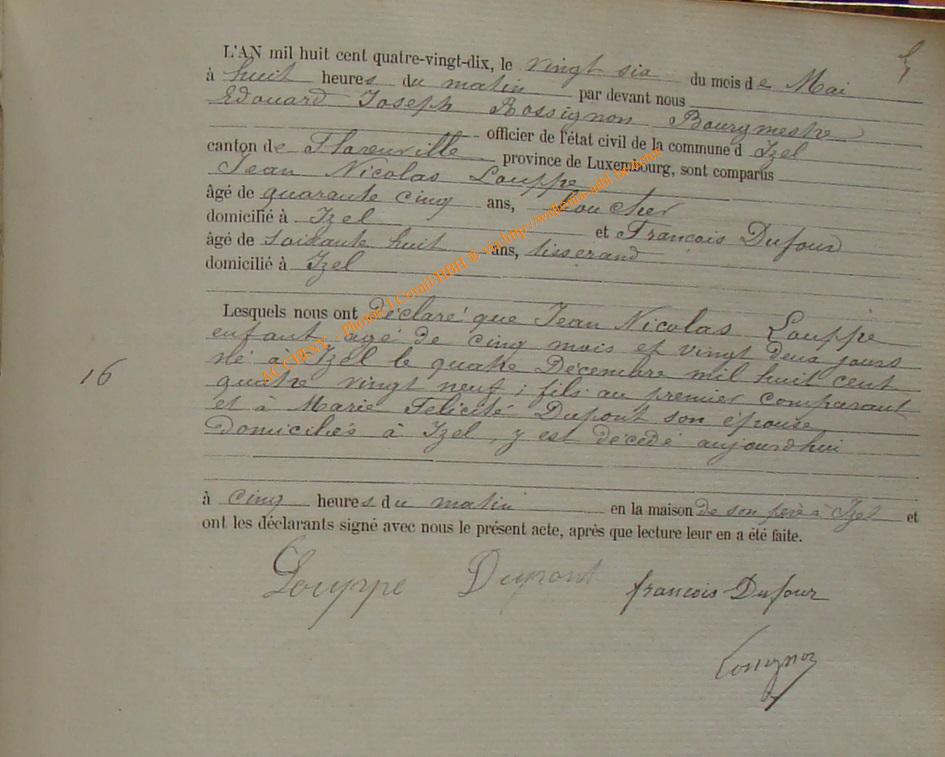 L'AN mil huit cent quatre-vingt-dix, le vingt six du mois de Mai
à huit heures du matin par devant nous
Edouard Joseph Rossignon Bourgmestre
officier de l'état civil de la commune d Izel
canton de Florenville province de Luxembourg, sont comparus
Jean Nicolas Louppe
âgé de quarante cinq ans,
domicilié à Izel et Francois Dufour
âgé de soixante huit ans, tisserand
domicilié à Izel
Lesquels nous ont déclaré que Jean Nicolas Louppe
enfant agé de cinq mois et vingt deux jours
né à Izel le quatre Décembre mil huit cent
quatre vingt neuf; fils au premier comparant
et à Marie Felicité Dupont son épouse
domiciliés à Izel, y est décédé aujourdhui
16
à cinq heures du matin en la maison de son père à Izel et
ont les déclarants signé avec nous le présent acte, après que lecture leur en a été faite.
Louppe Dupont francois Dufour